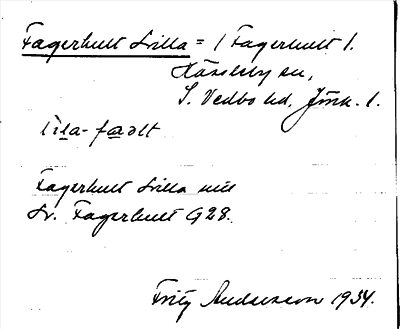 Fagerhult Lilla = 1 Fagerhult 1.
Hässleby sn,
S. Vedbo hd, Jönk. l.
Fagerhult Lilla
Fagerhult G28.
Fritz Andersson 1934.